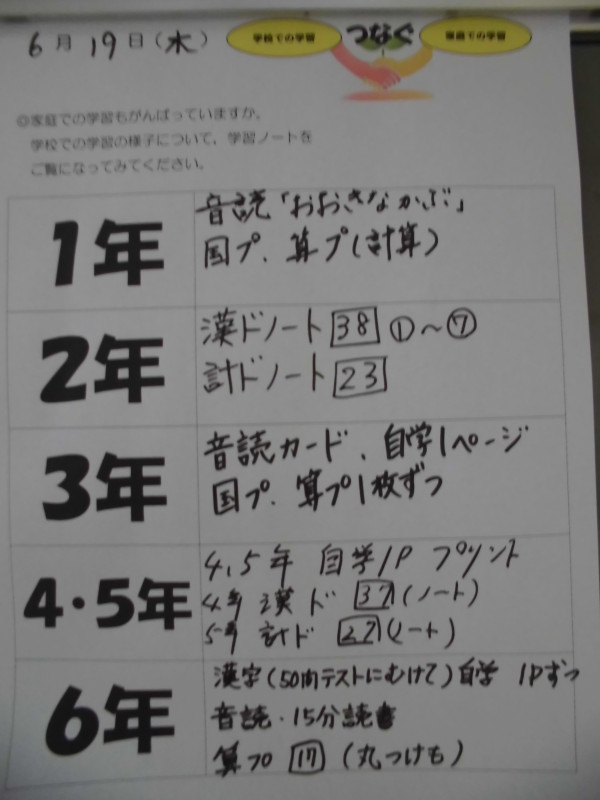 6月19日(木)
学校での学習 つなぐ 家庭での学習
◎家庭での学習もがんばっていますか。
学校での学習の様子について、学習ノートを
ご覧になってみてください。
1年
音読「おおきなかぶ」
国プ、算プ(計算)
2年
漢ドノート 38 ①～⑦
計ドノート 23
3年
音読カード、自学1ページ
国プ、算プ1枚ずつ
4・5年
4、5年 自学1P プリント
4年 漢ド 37(ノート)
5年 計ド 27(ノート)
6年
漢字(50問テストにむけて)自学 1Pずつ
音読・15分読書
算プロ 17 (丸つけも)